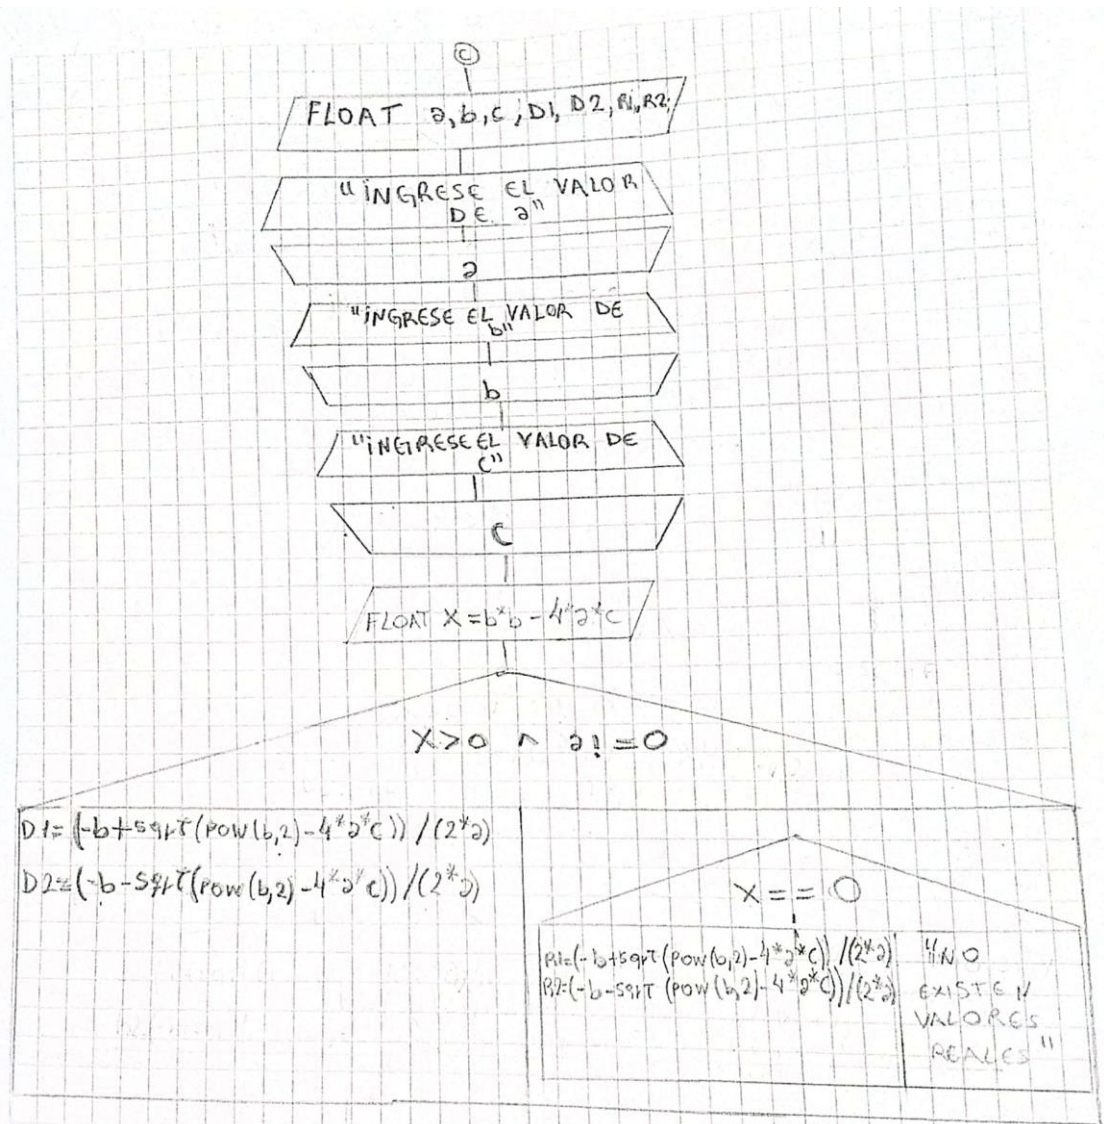 C
FLOAT a,b,c,D1,D2,R1,R2;
"INGRESE EL VALOR
DE a"
a
"INGRESE EL VALOR DE
b"
b
"INGRESE EL VALOR DE
c"
C
FLOAT X=b*b-4*a*c
X>0 ^ a!=0
D1=(-b+sqrt(pow(b,2)-4*a*c))/(2*a)
D2=(-b-sqrt(pow(b,2)-4*a*c))/(2*a)
X==0
R1=(-b+sqrt(pow(b,2)-4*a*c))/(2*a)
R2=(-b-sqrt(pow(b,2)-4*a*c))/(2*a)
"NO
EXISTEN
VALORES
REALES"